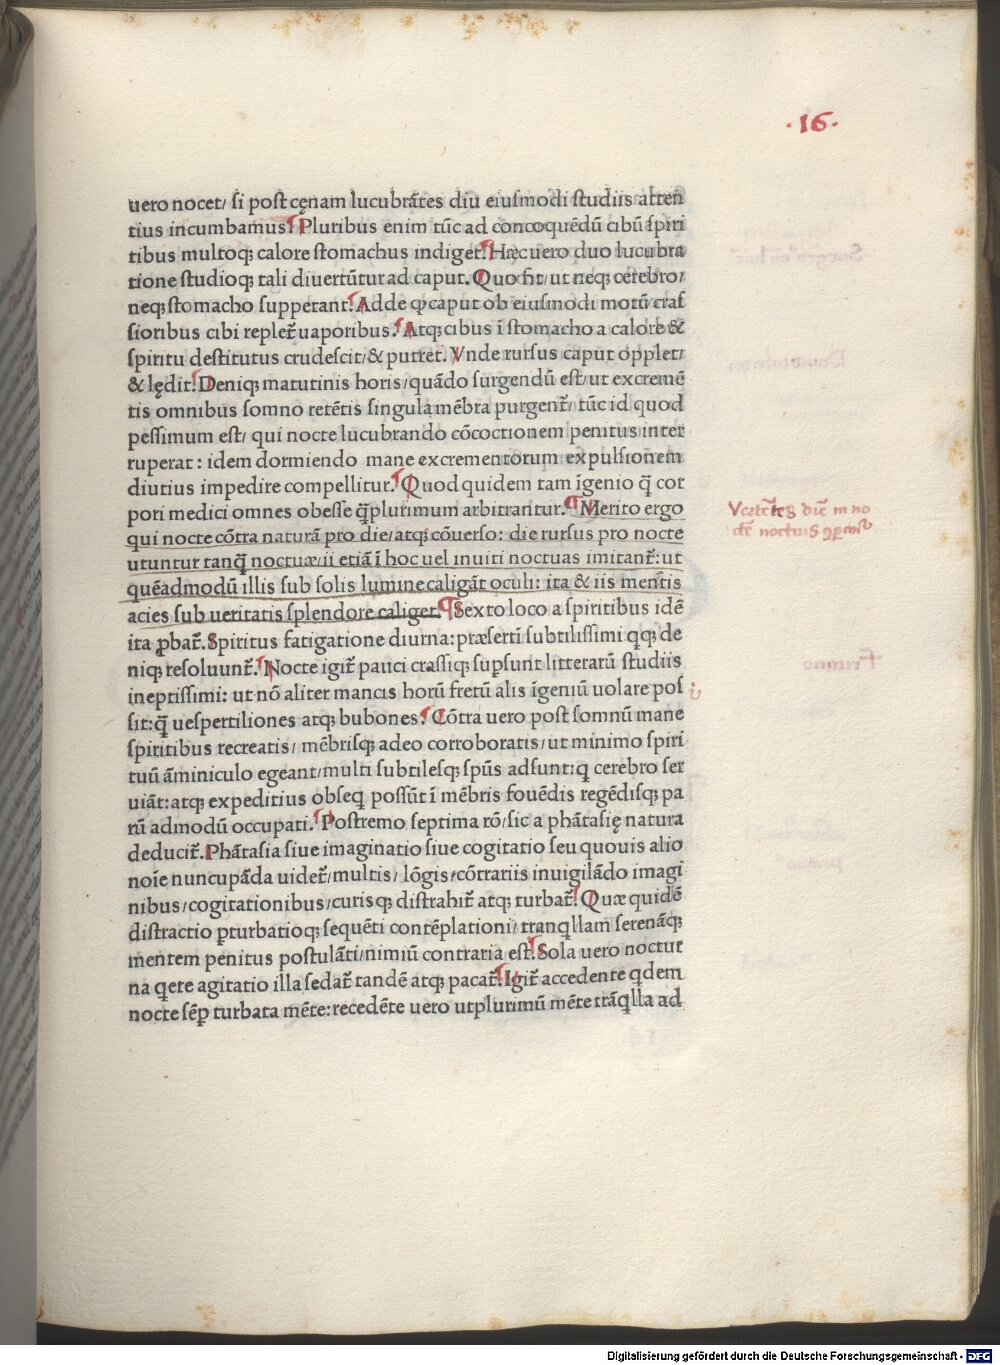 ·16·
uero nocet/ si post cęnam lucubrãtes diu eiusmodi studiis atten
tius incumbamus. Pluribus enim tũc ad concoquẽdũ cibũ spiri
tibus multoq; calore stomachus indiget. Hæc uero duo lucubra
tione studioq; tali diuertũtur ad caput. Quo fit/ ut neq; cerebro/
neq; stomacho suppetant. Adde ꝙ caput ob eiusmodi motũ cras
sioribus cibi repletr̃ uaporibus. Atq; cibus ĩ stomacho a calore &
spiritu destitutus crudescit/ & putret. Vnde rursus caput opplet/
& lędit. Deniq; matutinis horis/ quãdo surgendũ est/ ut excremẽ
tis omnibus somno retẽtis singula mẽbra purgentr̃/ tũc id quod
pessimum est/ qui nocte lucubrando cõcoctionem penitus inter
ruperat: idem dormiendo mane excrementorum expulsionem
diutius impedire compellitur. Quod quidem tam igenio q̃ cor
pori medici omnes obesse q̃plurimum arbitrantur. Merito ergo
qui nocte cõtra naturã pro die/ atq; cõuerso: die rursus pro nocte
utuntur tanq̃ noctuæ/ ii etiã ĩ hoc uel inuiti noctuas imitantr̃: ut
quẽadmodũ illis sub solis lumine caligãt oculi: ita & iis mentis
acies sub ueritatis splendore caliget. Sexto loco a spiritibus idẽ
ita ꝓbatr̃. Spiritus fatigatione diurna: præsertĩ subtilissimi qq; de
niq; resoluuntr̃. Nocte igitr̃ pauci crassiq; suꝑsunt litterarũ studiis
ineptissimi: ut nõ aliter mancis horũ fretũ alis ĩgeniũ uolare pos
sit: q̃ uespertiliones atq; bubones. Cõtra uero post somnũ mane
spiritibus recreatis/ mẽbrisq; adeo corroboratis/ ut minimo spiri
tuũ ãminiculo egeant/ multi subtilesq; spũs adsunt: q cerebro ser
uiãt: atq; expeditius obseq possũt ĩ mẽbris fouẽdis regẽdisq; pa
rũ admodũ occupati. Postremo septima rõ/ sic a phãtasię natura
deducitr̃. Phãtasia siue imaginatio siue cogitatio seu quouis alio
noĩe nuncupãda uidetr̃/ multis/ lõgis/ cõtrariis inuigilãdo imagi
nibus/ cogitationibus/ curisq; distrahitr̃ atq; turbatr̃. Quæ quidẽ
distractio ꝑturbatioq; sequẽti contẽplationi/ tranqllam serenãq;
mentem penitus postulãti/ nimiũ contraria est. Sola uero noctur
na qete agitatio illa sedatr̃ tandẽ atq; pacatr̃. Igitr̃ accedente qdem
nocte sẽꝑ turbata mẽte: recedẽte uero utplurimũ mẽte trãqlla ad
diẽ in no
noctuis
Digitalisierung gefördert durch die Deutsche Forschungsgemeinschaft - DFG